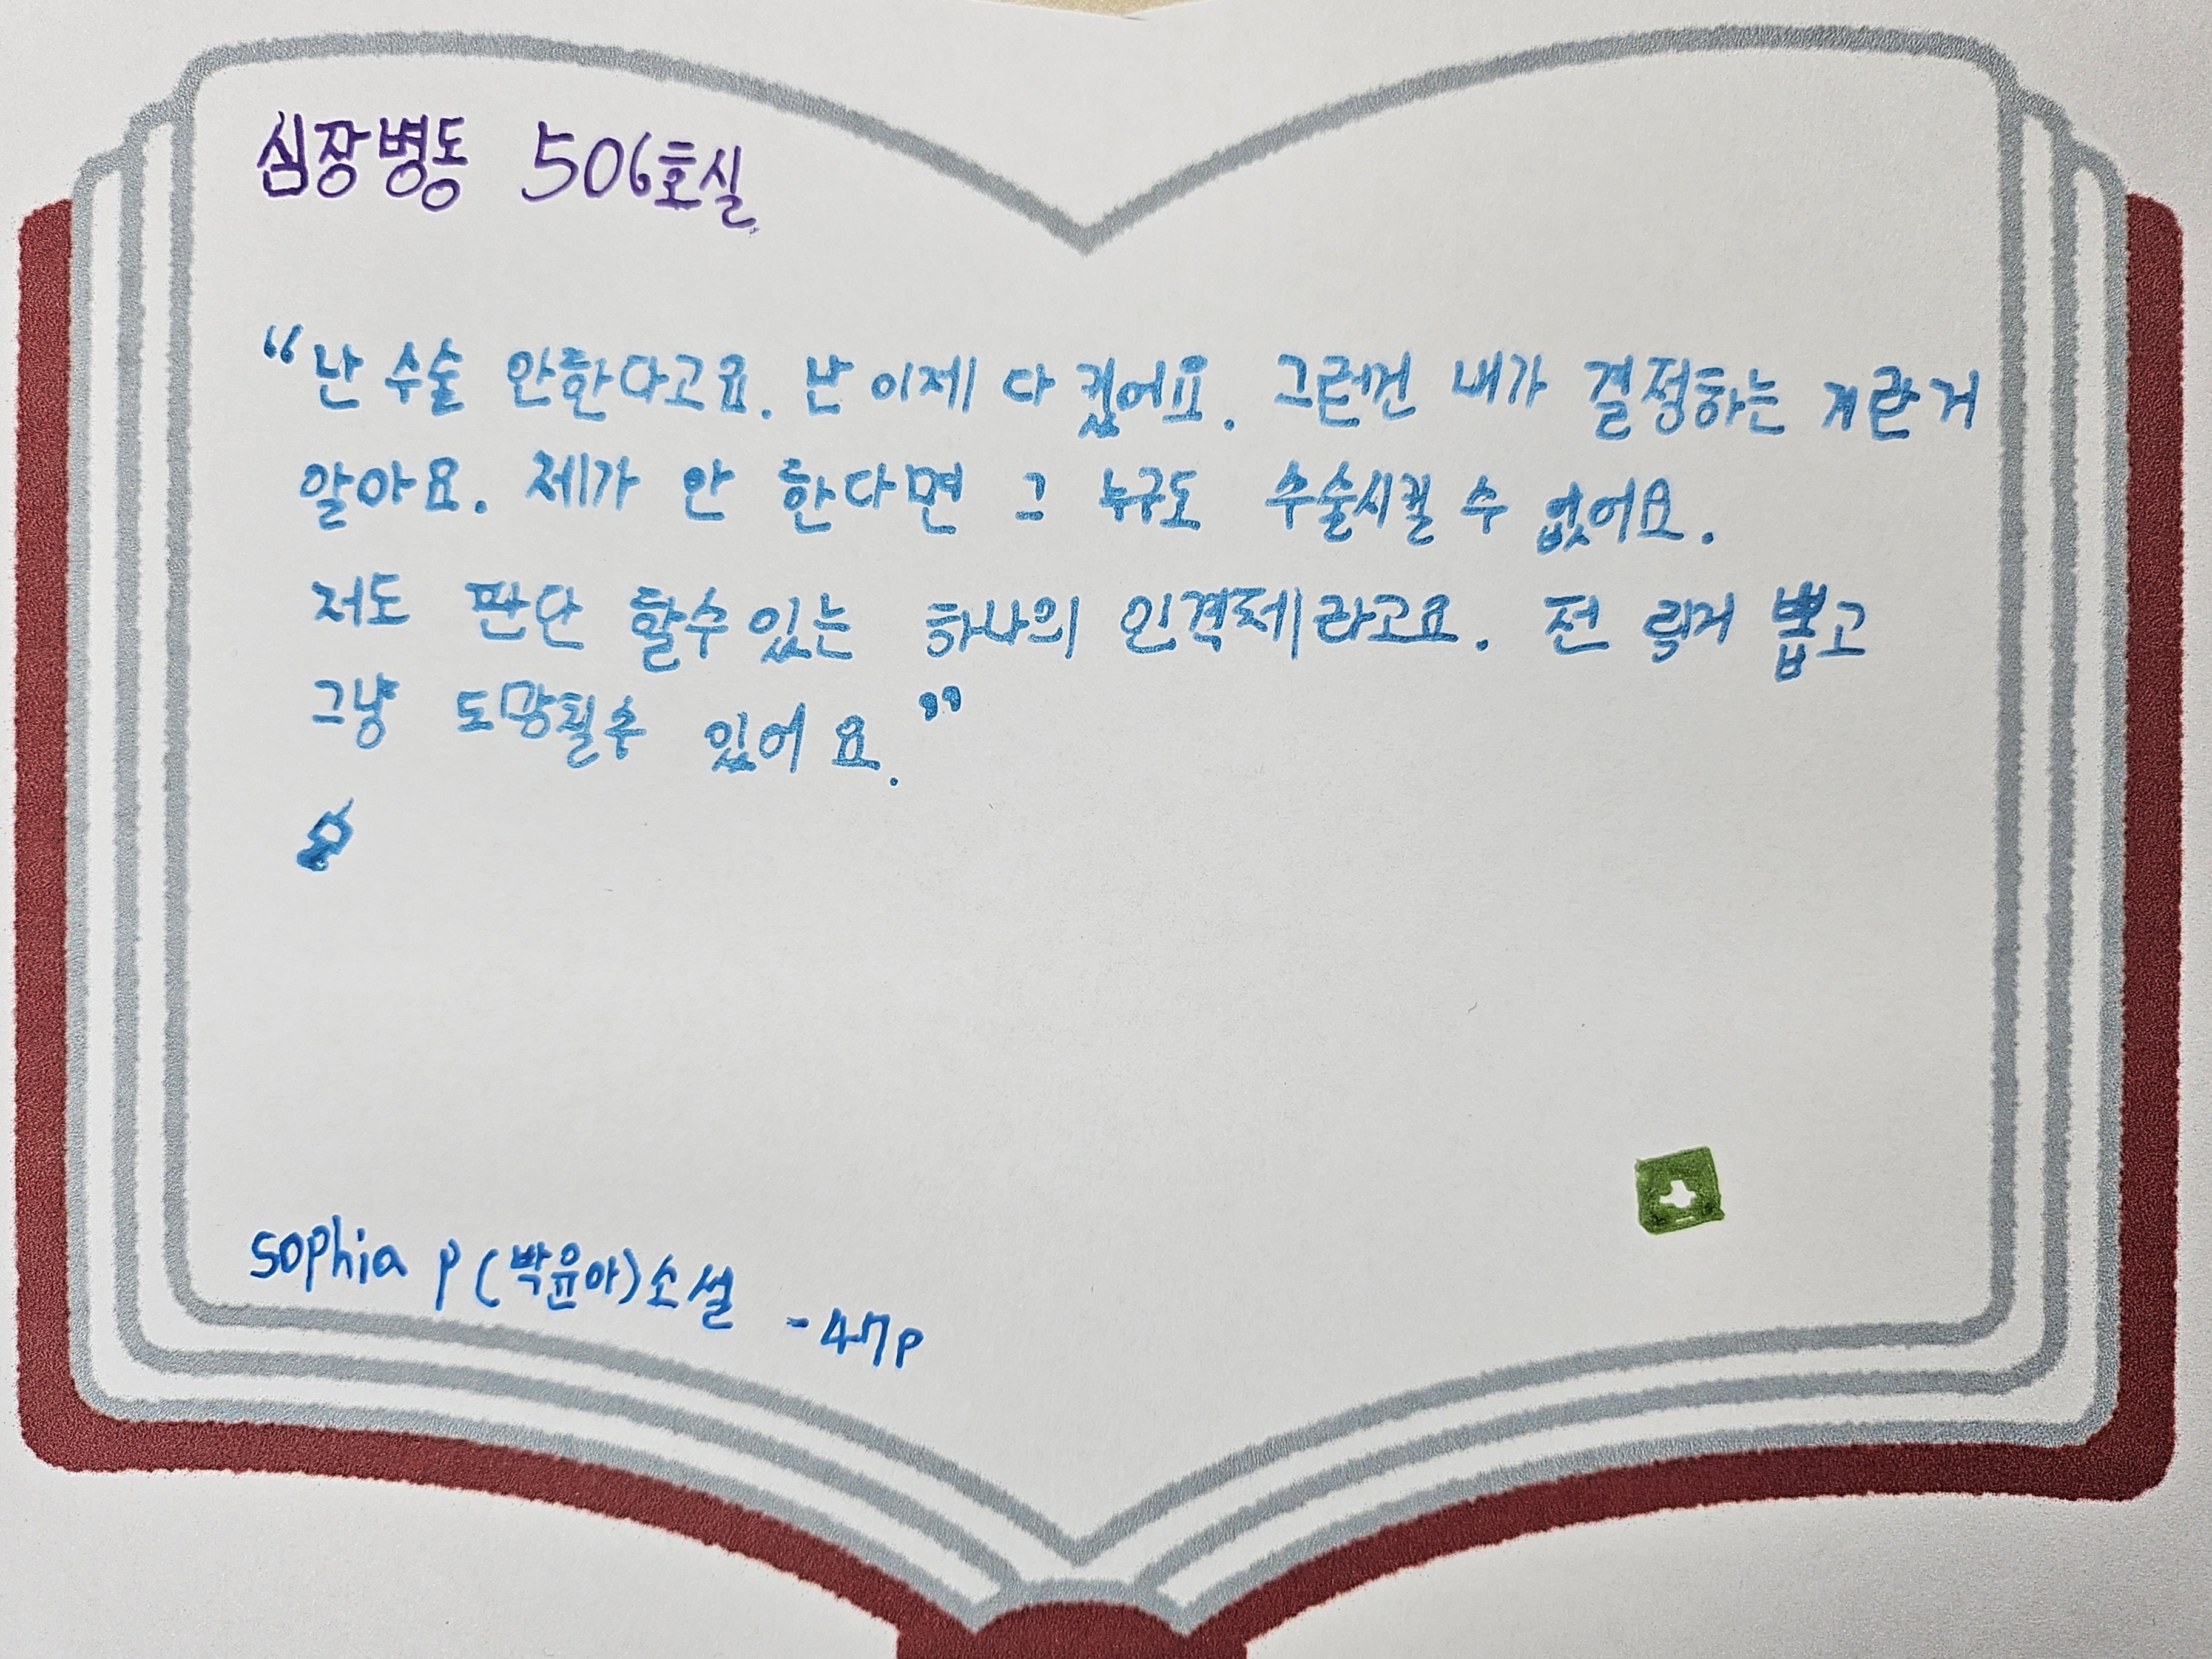 심장병동 506호실
“난 수술 안한다고요. 난 이제 다 컸어요. 그런건 내가 결정하는 거란거
알아요. 제가 안 한다면 그 누구도 수술시킬 수 없어요.
저도 판단 할수 있는 하나의 인격체라고요. 전 링거 뽑고
그냥 도망칠수 있어요.”
sophia p (박윤아) 소설 -47p